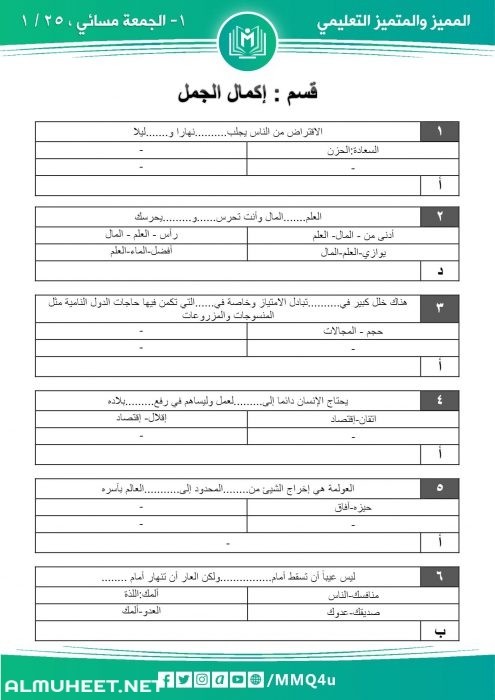 المميز والمتميز التعليمي
١- الجمعة مسائي ، ٢٥ / ١
قسم : إكمال الجمل
١
الاقتراض من الناس يجلب..........نهارا و.......ليلا
السعادة:الحزن
-
-
أ
٢
العلم.......المال وأنت تحرس......و.........يحرسك
أدنى من - المال- العلم
رأس - العلم - المال
يوازي-العلم-المال
أفضل-الماء-العلم
د
٣
هناك خلل كبير في..........تبادل الامتياز وخاصة في......التي تكمن فيها حاجات الدول النامية مثل
المنسوجات والمزروعات
حجم - المجالات
-
-
-
أ
٤
يحتاج الإنسان دائما إلى.........لعمل وليساهم في رفع.........بلاده
اتقان-إقتصاد
إقلال- إقتصاد
-
-
أ
٥
العولمة هي إخراج الشيئ من........المحدود إلى..........العالم بأسره
حيزه-أفاق
-
-
-
أ
-
٦
ليس عيباً أن تسقط أمام................ولكن العار أن تنهار أمام ........
منافسك-الناس
ألمك:اللذة
صديقك-عدوك
العدو-ألمك
ب
/MMQ4u
ALMUHEET.NET